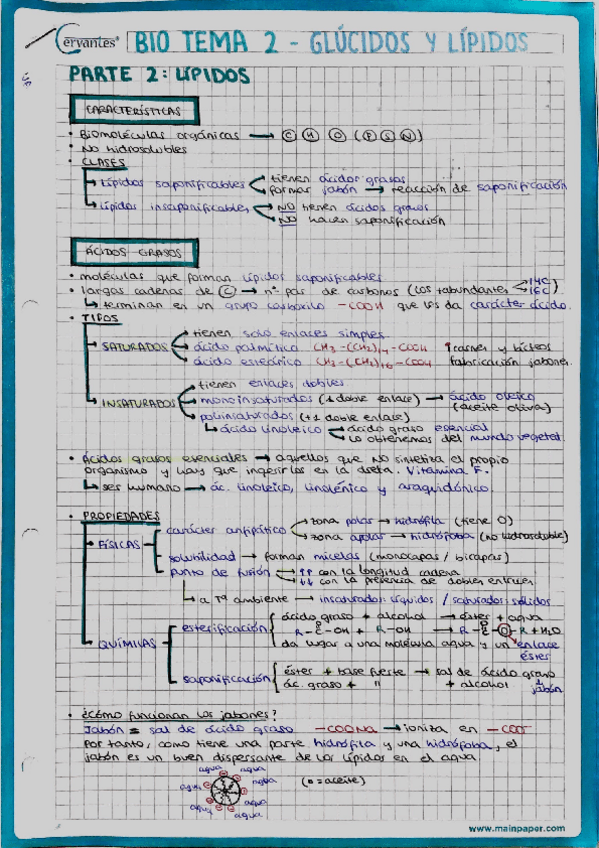 Cervantes®
BIO TEMA 2 - GLÚCIDOS Y LÍPIDOS
PARTE 2: LÍPIDOS
CARACTERÍSTICAS
• Biomoléculas orgánicas → C H O (P S N)
• No hidrosolubles
• CLASES
↳ Lípidos saponificables
tienen ácidos grasos
forman jabón → reacción de saponificación
↳ Lípidos insaponificables
NO tienen ácidos grasos
NO hacen saponificación
ÁCIDOS GRASOS
• moléculas que forman lípidos saponificables
• largas cadenas de C → nº par de carbonos (los + abundantes 14C
16C).
↳ terminan en un grupo carboxilo -COOH que les da carácter ácido.
• TIPOS
↳ SATURADOS
tienen solo enlaces simples.
ácido palmítico CH3-(CH2)14-COOH ↑ carnes y lácteos
ácido esteárico CH3-(CH2)16-COOH fabricación jabones.
↳ INSATURADOS
tienen enlaces dobles.
monoinsaturados (1 doble enlace) → ácido oleico
(aceite oliva)
poliinsaturados (+1 doble enlace)
↳ ácido linoleico
ácido graso esencial
lo obtenemos del mundo vegetal.
• Ácidos grasos esenciales → aquellos que NO sintetiza el propio
organismo y hay que ingerirlos en la dieta. Vitamina F.
↳ ser humano → ác. linoleico, linolénico y araquidónico.
• PROPIEDADES
FÍSICAS
carácter anfipático
zona polar → hidrófila (tiene O)
zona apolar → hidrófoba (no hidrosoluble)
solubilidad → forman micelas (monocapas / bicapas)
punto de fusión
↑↑ con la longitud cadena
↓↓ con la presencia de dobles enlaces
↳ a Tª ambiente → insaturados: líquidos / saturados: sólidos
QUÍMICAS
esterificación
ácido graso + alcohol → éster + agua
R-C-OH + R-OH → R-C-O-R + H2O
O O
da lugar a una molécula agua y un enlace
éster
saponificación
éster + base fuerte → sal de ácido graso
ác. graso + " + alcohol ↳ jabón
• ¿Cómo funcionan los jabones?
Jabón = sal de ácido graso -COONa → ioniza en -COO⁻
Por tanto, como tiene una parte hidrófila y una hidrófoba, el
jabón es un buen dispersante de los lípidos en el agua.
agua agua
agua agua
agua agua
agua agua
www.mainpaper.com